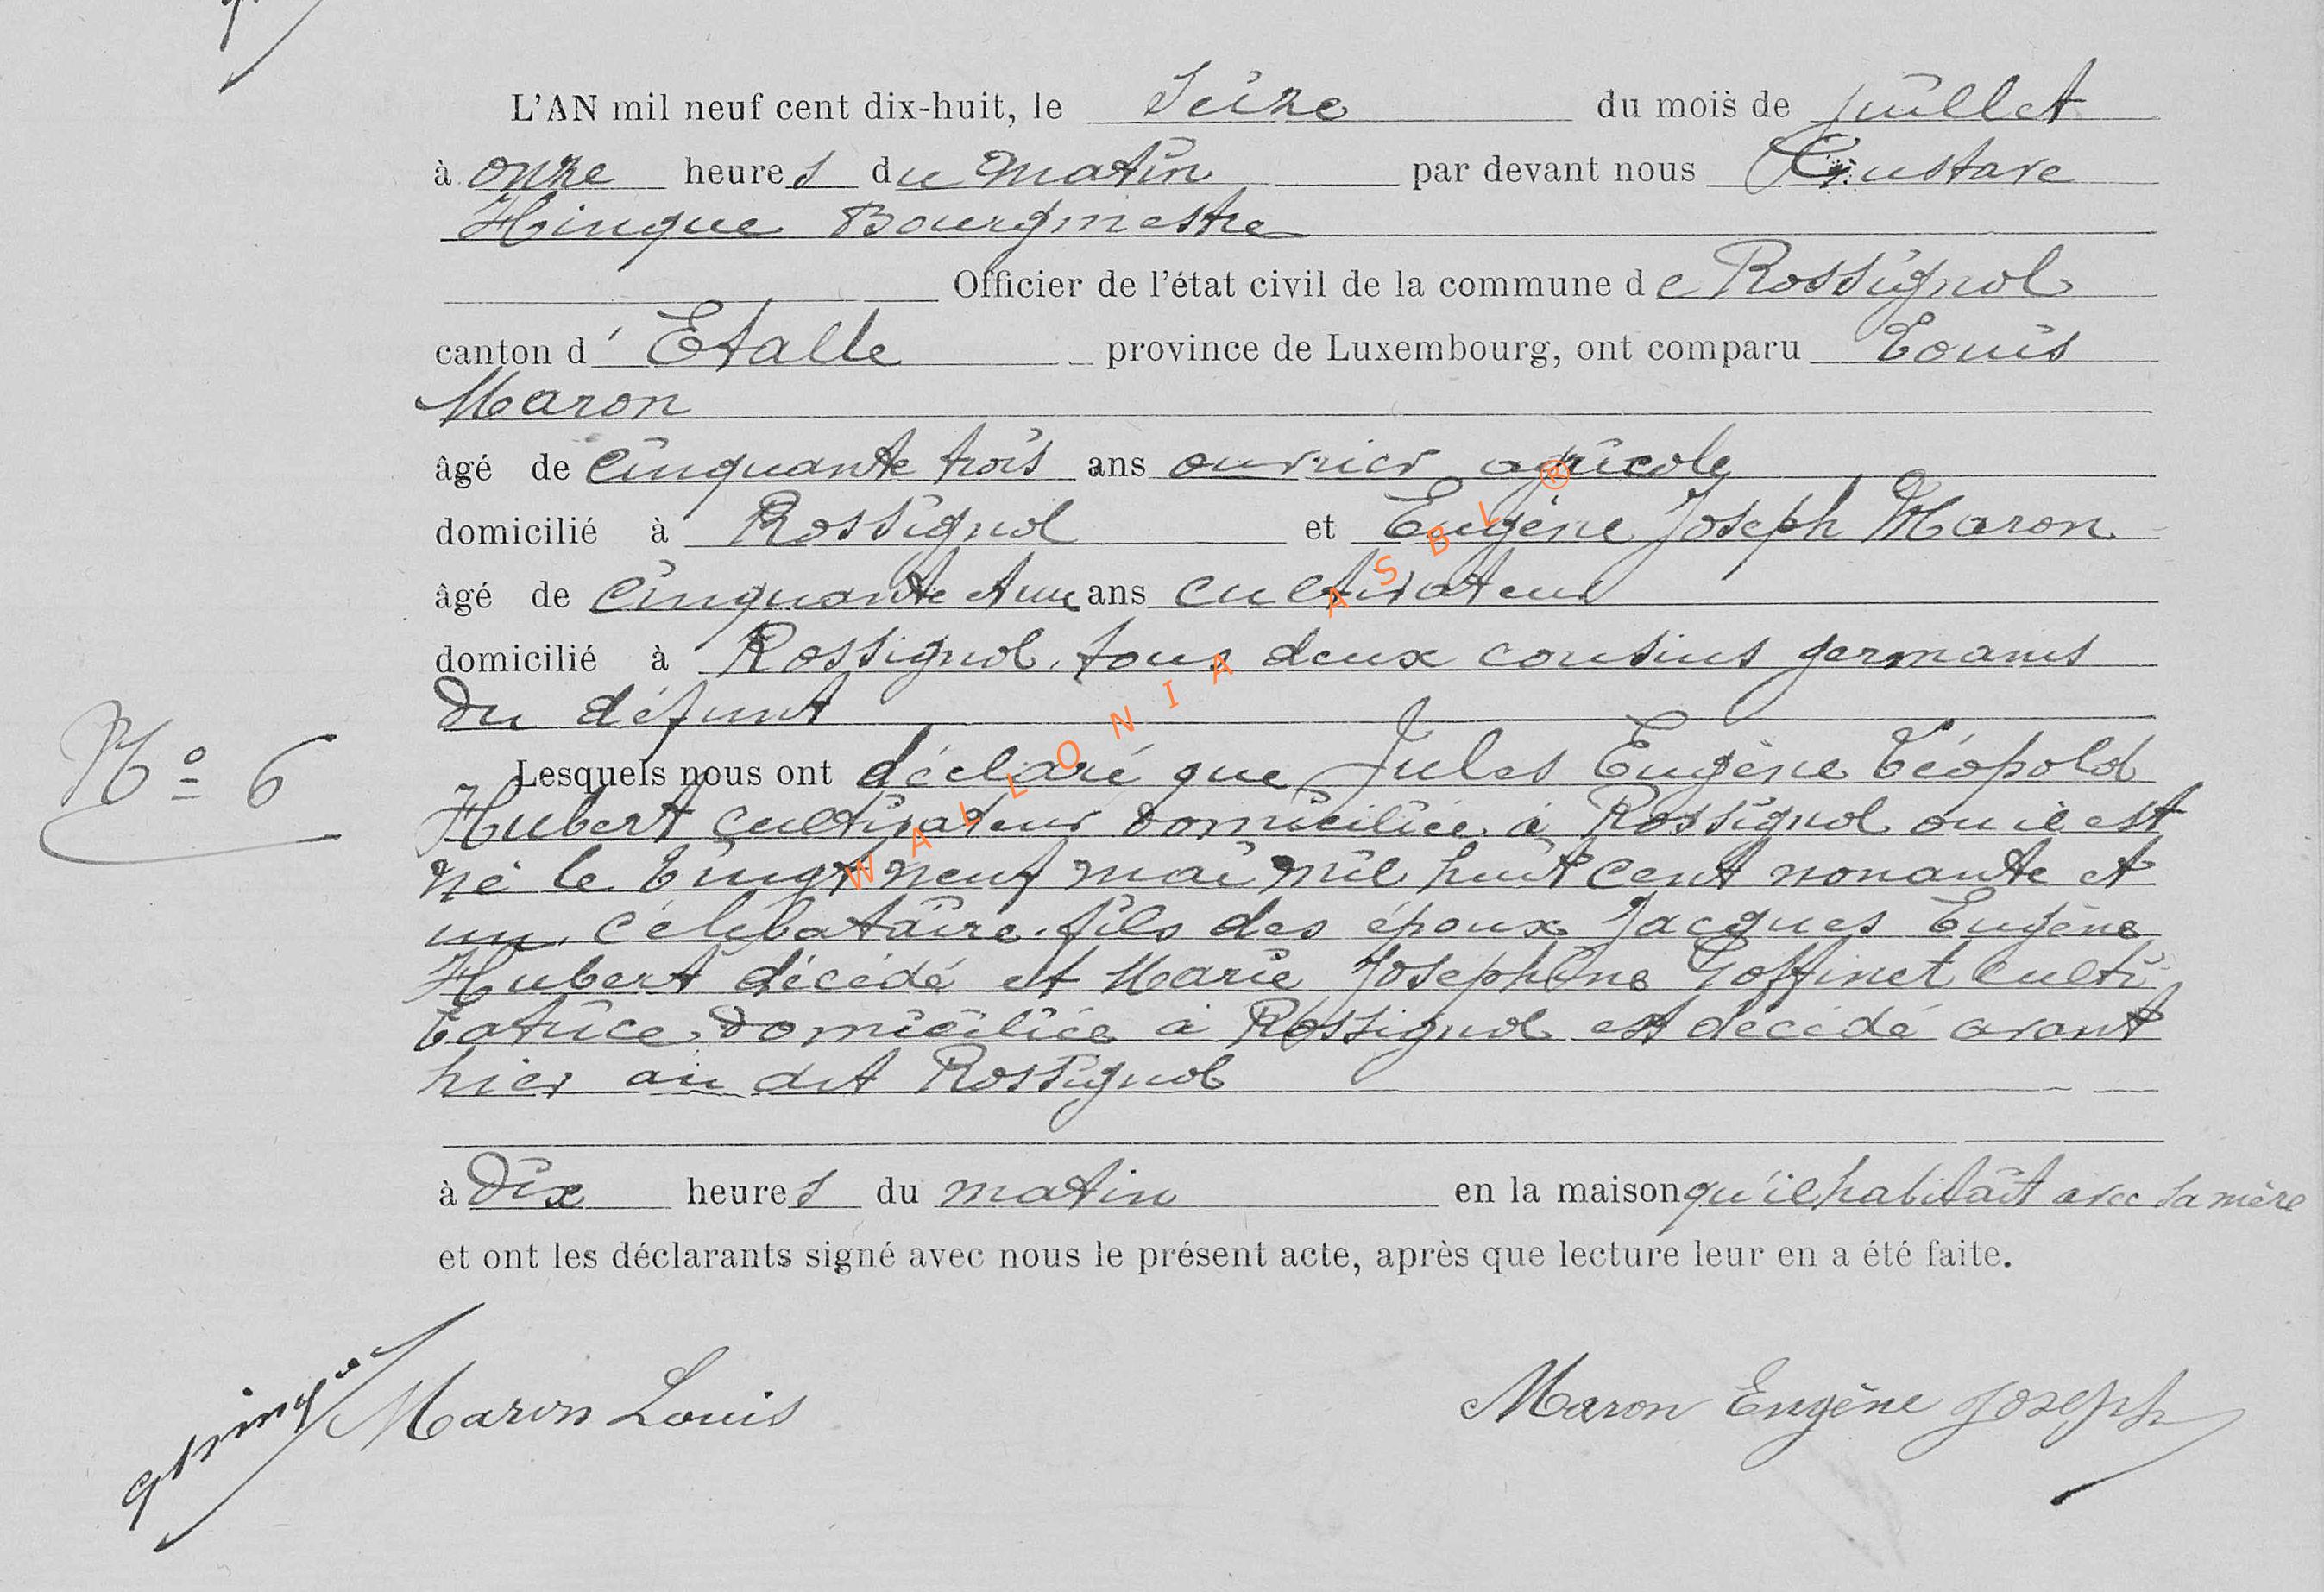 L'AN mil neuf cent dix-huit, le Seize du mois de juillet
à onze heures du matin par devant nous Gustave
Hinque Bourgmestre
Officier de l'état civil de la commune de Rossignol
canton d' Etalle province de Luxembourg, ont comparu Louis
Maron
âgé de cinquante trois ans ouvrier agricole
domicilié à Rossignol et Eugène Joseph Maron
âgé de cinquante et un ans cultivateur
domicilié à Rossignol, tous deux cousins germains
du défunt
N° 6
Lesquels nous ont déclaré que Jules Eugène Léopold
Hubert cultivateur domiciliée à Rossignol ou il est
né le vingt neuf mai mil huit cent nonante et
un, célibataire, fils des époux Jacques Eugène
Hubert décédé et Marie Joséphine Goffinet culti
vatrice domiciliée à Rossignol est décédé avant
hier au dit Rossignol
à Dix heures du matin en la maison qu'il habitait avec sa mère
et ont les déclarants signé avec nous le présent acte, après que lecture leur en a été faite.
G Hinque Maron Louis Maron Eugène Joseph
WALLONIA ASBL ®